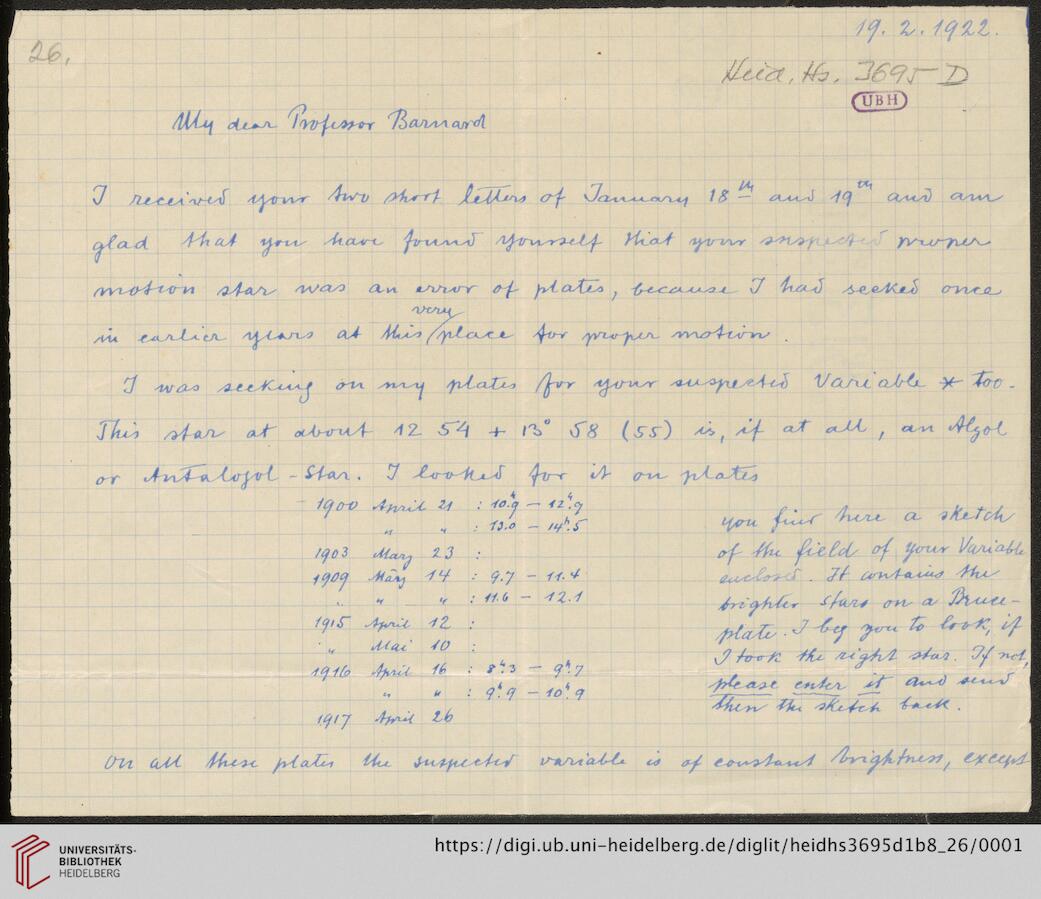 19. 2. 1922.
26.
Heid. Hs. 3695 D
UBH
My dear Professor Barnard
I received your two short letters of January 18th and 19th and am
glad that you have found yourself that your suspected proper
motion star was an error of plates, because I had seeked once
very
in earlier years at this place for proper motion.
I was seeking on my plates for your suspected Variable * too.
This star at about 12 54 + 13° 58 (55) is, if at all, an Algol
or Antalogol-Star. I looked for it on plates
1900 April 21 : 10h.9 — 12h.9
" " : 13.0 — 14h.5
1903 März 23 :
1909 März 14 : 9.7 — 11.4
" " " : 11.6 — 12.1
1915 April 12 :
" Mai 10 :
1916 April 16 : 8h.3 — 9h.7
" " : 9h.9 — 10h.9
1917 April 26
you find here a sketch
of the field of your Variable
enclosed. It contains the
brighter stars on a Bruce-
plate. I beg you to look, if
I took the right star. If not,
please enter it and send
then the sketch back.
On all these plates the suspected variable is of constant brightness, except
UNIVERSITÄTS-
BIBLIOTHEK
HEIDELBERG
https://digi.ub.uni-heidelberg.de/diglit/heidhs3695d1b8_26/0001